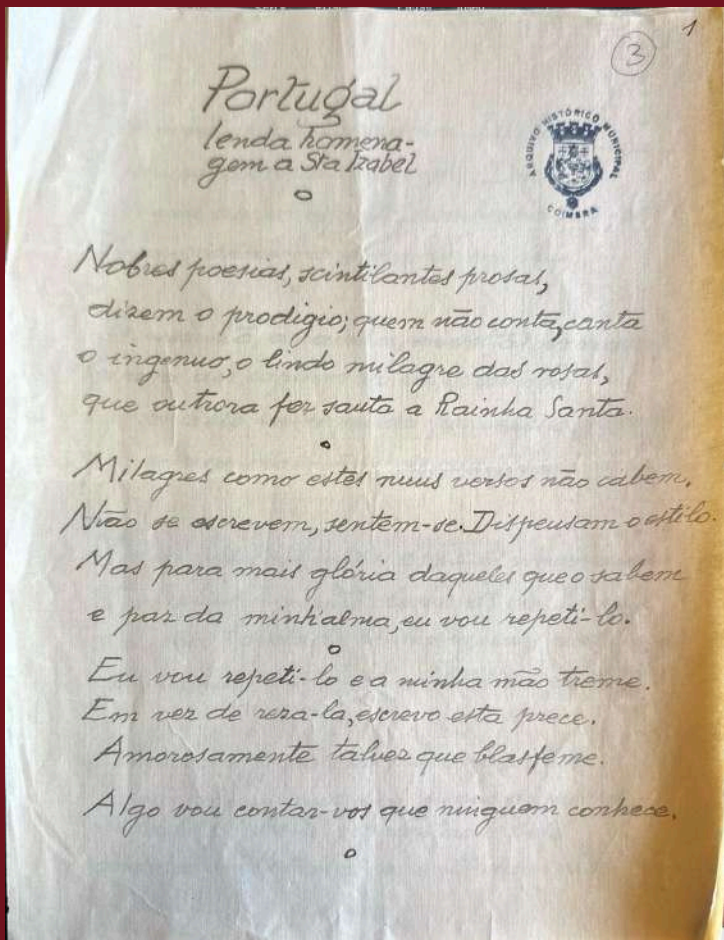 1
3
Portugal
lenda homena-
gem a Sta Izabel
ARQUIVO HISTÓRICO MUNICIPAL
COIMBRA
Nobres poesias, scintilantes prosas,
dizem o prodigio; quem não conta, canta
o ingenuo, o lindo milagre das rosas,
que outrora fez santa a Rainha Santa.
Milagres como estes nuns versos não cabem.
Não se escrevem, sentem-se. Dispensam o estilo.
Mas para mais glória daqueles que o sabem
e paz da minh'alma, eu vou repeti-lo.
Eu vou repeti-lo e a minha mão treme.
Em vez de reza-la, escrevo esta prece.
Amorosamente talvez que blasfeme.
Algo vou contar-vos que ninguem conhece.